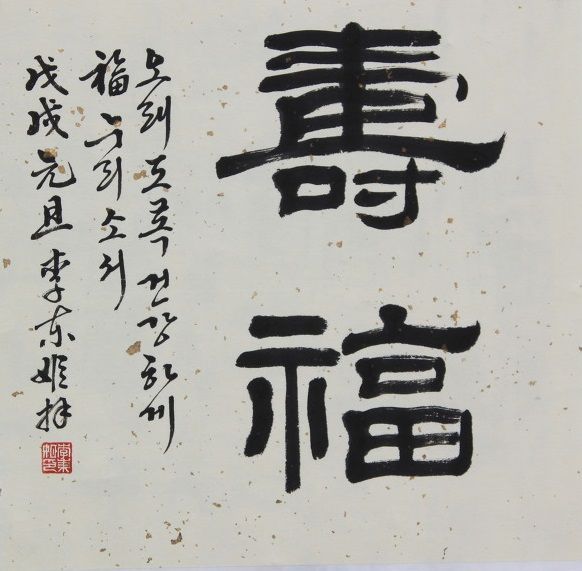 壽福
오래도록 건강하게
福 누리소서
戊戌元旦 李東姬拜